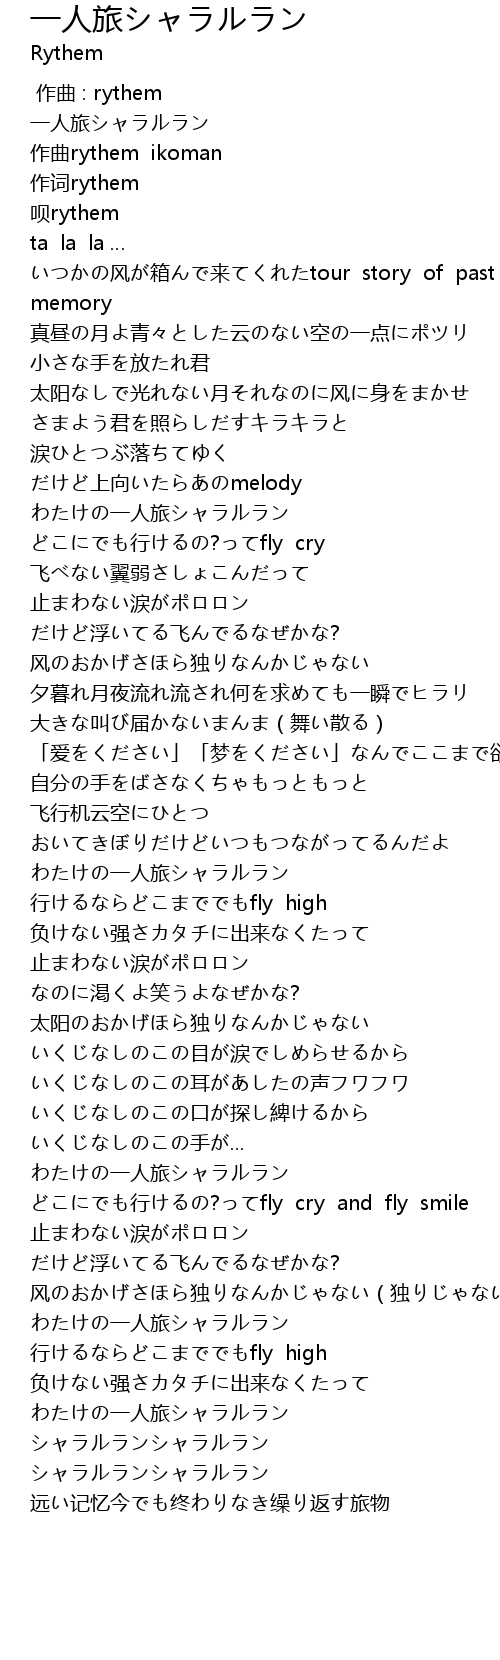 一人旅シャラルラン
Rythem
作曲 : rythem
一人旅シャラルラン
作曲rythem ikoman
作词rythem
呗rythem
ta la la ...
いつかの风が箱んで来てくれたtour story of past
memory
真昼の月よ青々とした云のない空の一点にポツリ
小さな手を放たれ君
太阳なしで光れない月それなのに风に身をまかせ
さまよう君を照らしだすキラキラと
涙ひとつぶ落ちてゆく
だけど上向いたらあのmelody
わたけの一人旅シャラルラン
どこにでも行けるの?ってfly cry
飞べない翼弱さしょこんだって
止まわない涙がポロロン
だけど浮いてる飞んでるなぜかな?
风のおかげさほら独りなんかじゃない
夕暮れ月夜流れ流され何を求めても一瞬でヒラリ
大きな叫び届かないまんま ( 舞い散る )
「爱をください」「梦をください」なんでここまで欲
自分の手をばさなくちゃもっともっと
飞行机云空にひとつ
おいてきぼりだけどいつもつながってるんだよ
わたけの一人旅シャラルラン
行けるならどこまででもfly high
负けない强さカタチに出来なくたって
止まわない涙がポロロン
なのに渇くよ笑うよなぜかな?
太阳のおかげほら独りなんかじゃない
いくじなしのこの目が涙でしめらせるから
いくじなしのこの耳があしたの声フワフワ
いくじなしのこの口が探し綼けるから
いくじなしのこの手が...
わたけの一人旅シャラルラン
どこにでも行けるの?ってfly cry and fly smile
止まわない涙がポロロン
だけど浮いてる飞んでるなぜかな?
风のおかげさほら独りなんかじゃない ( 独りじゃない
わたけの一人旅シャラルラン
行けるならどこまででもfly high
负けない强さカタチに出来なくたって
わたけの一人旅シャラルラン
シャラルランシャラルラン
シャラルランシャラルラン
远い记忆今でも终わりなき缲り返す旅物